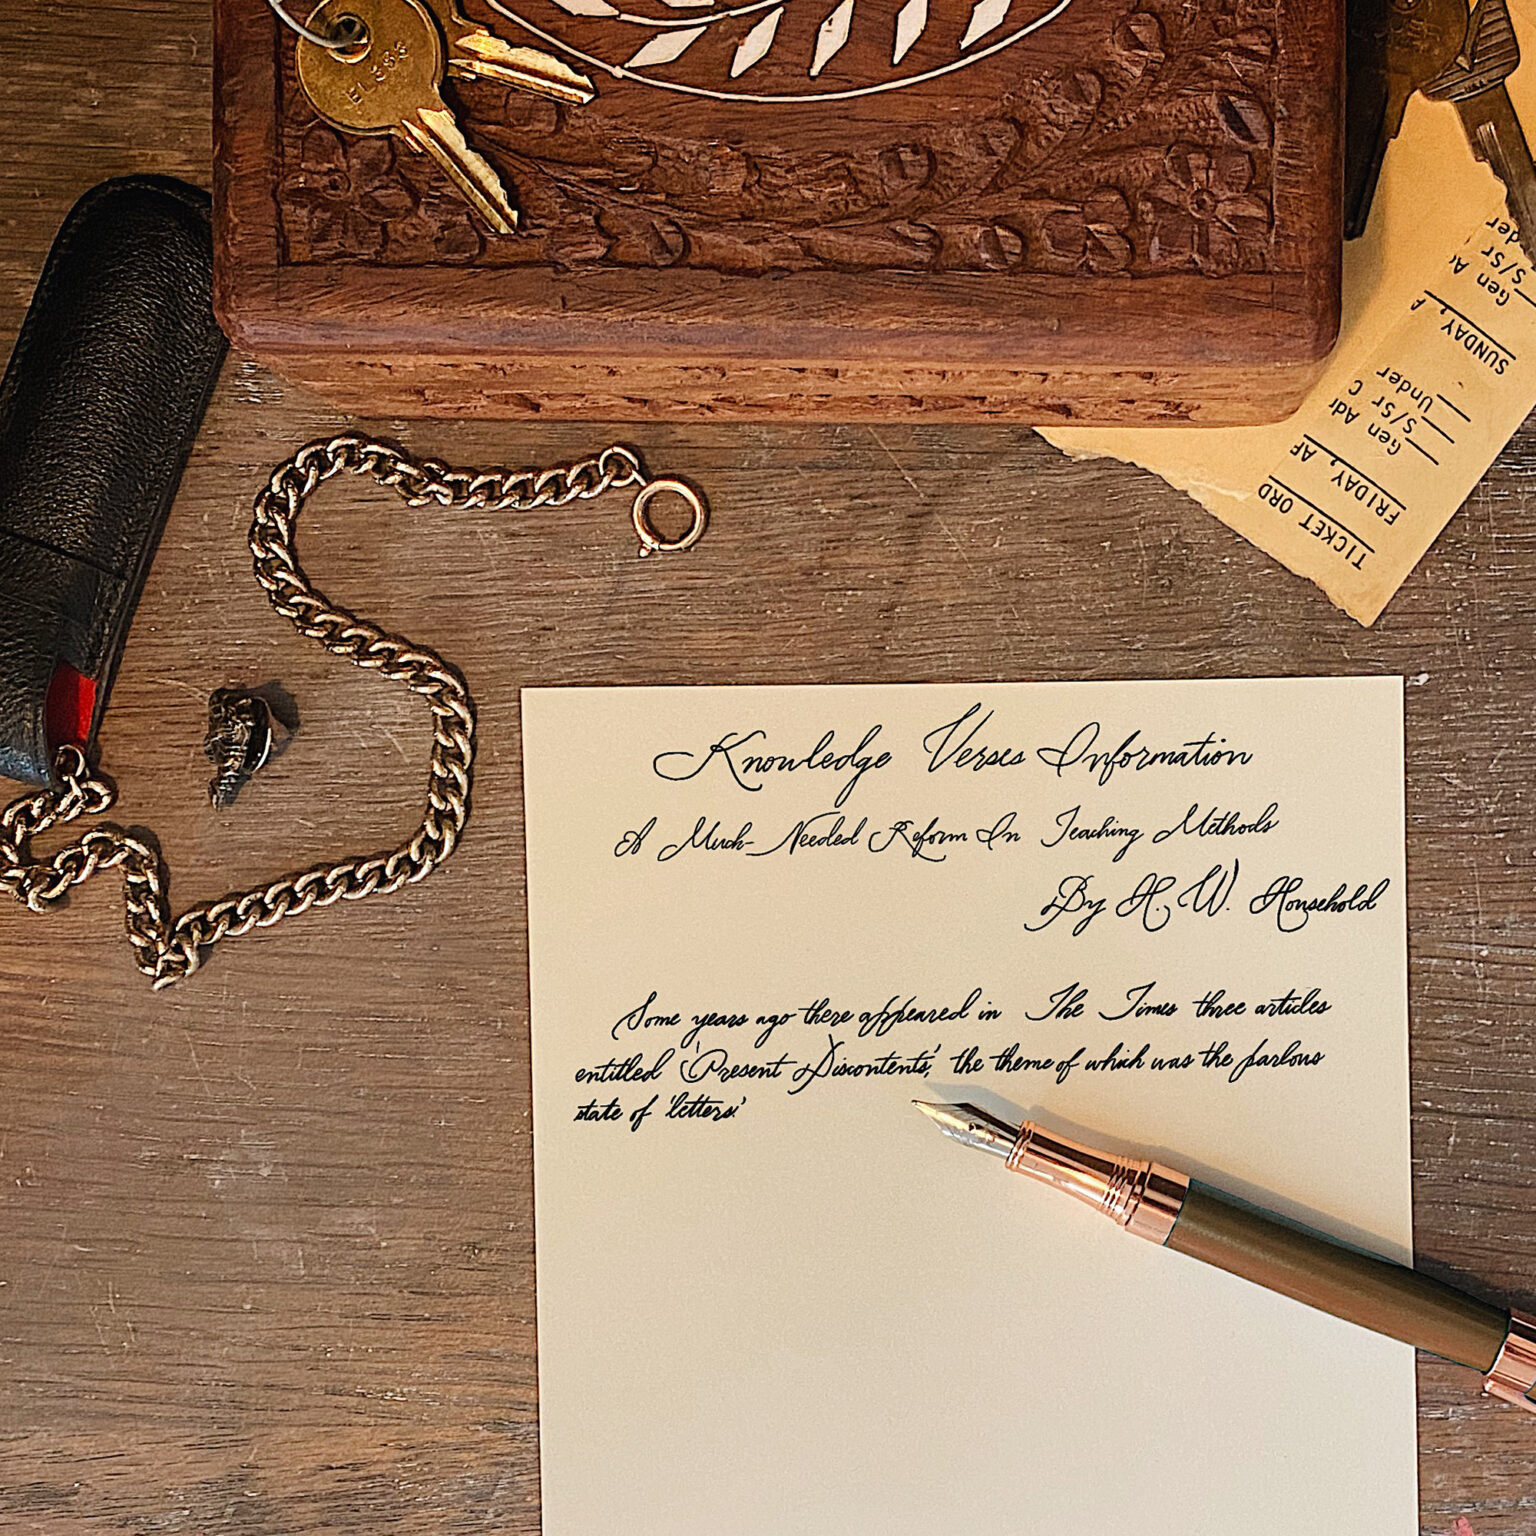 Knowledge Verses Information
A Much-Needed Reform In Teaching Methods
By H. W. Household
Some years ago there appeared in The Times three articles
entitled 'Present Discontents', the theme of which was the parlous
state of 'letters.'
TICKET ORD
FRIDAY, AF
Gen Adr
S/Sr C
Under
SUNDAY, A
Gen A
S/Sr
der